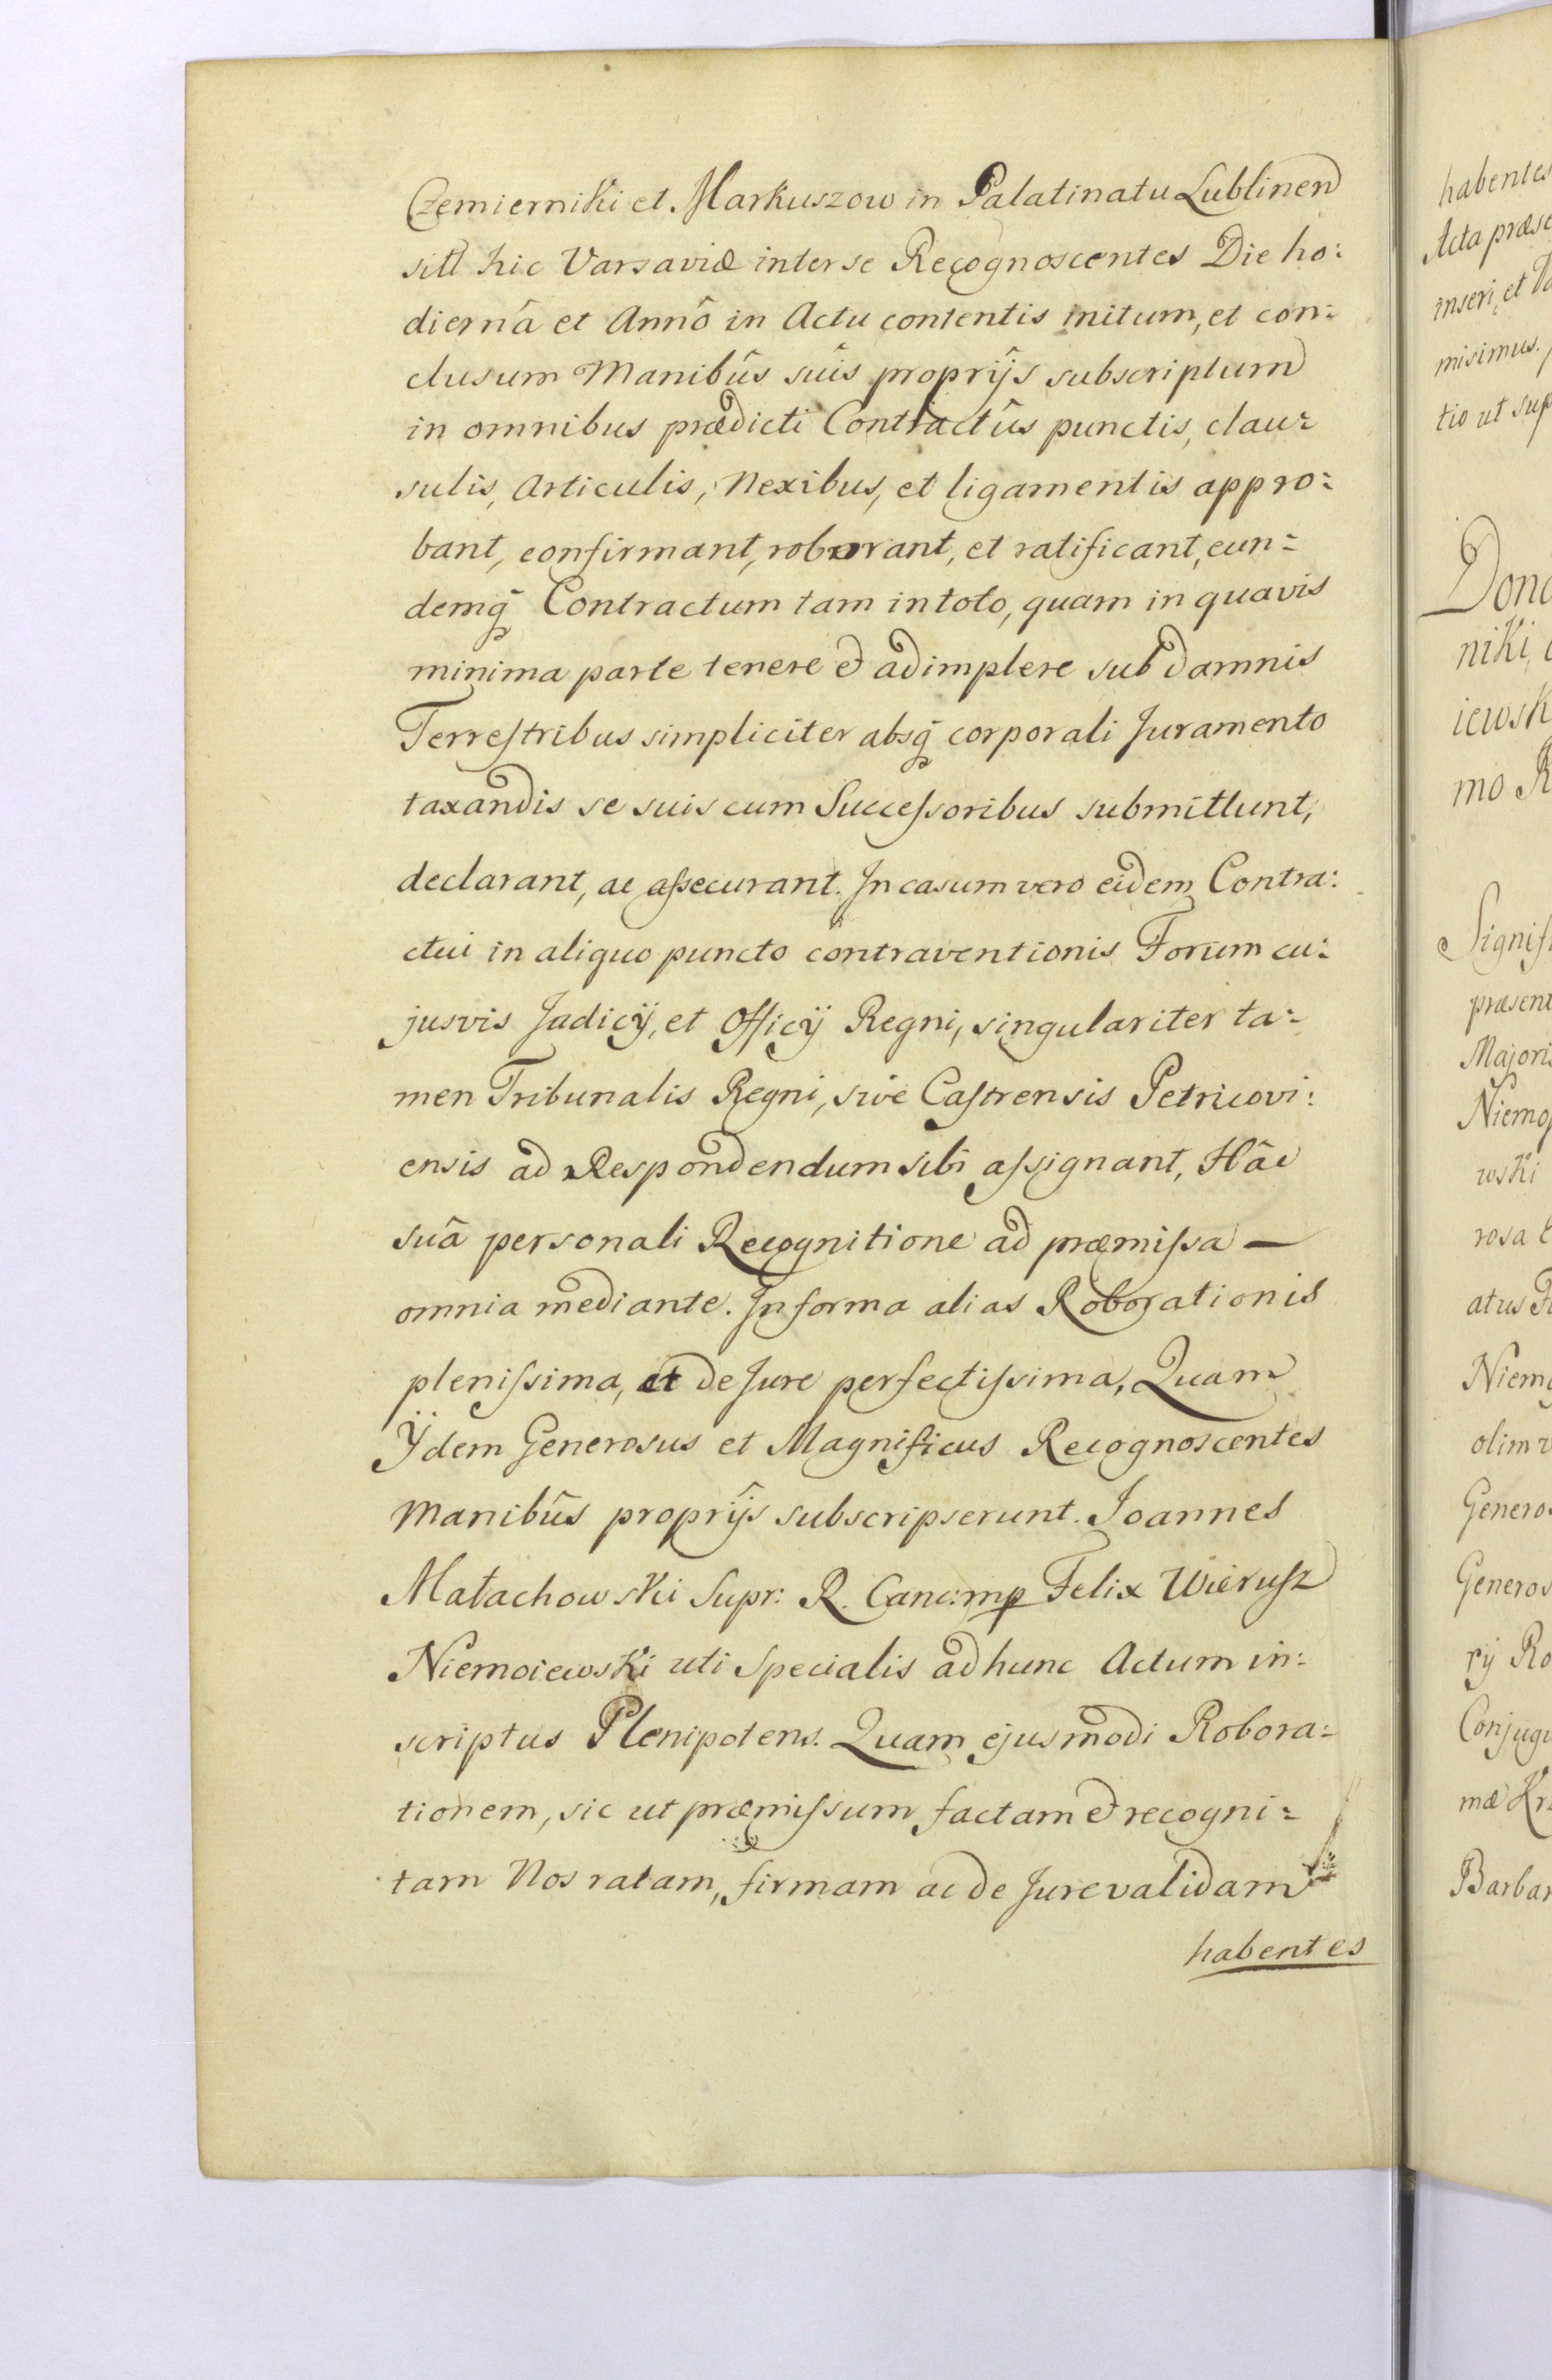 Czemierniki et Markuszow in Palatinatu Lublinen
sitt hic Varsaviæ inter se Recognoscentes Die ho:
diernâ et Annô in Actu contentis initum, et con:
clusum Manibûs suîs proprijs subscriptum
in omnibus prædicti Contractûs punctis, clau:
sulis, Articulis, Nexibus, et ligamentis appro:
bant, confirmant, roborant, et ratificant, eun:
demq̃ Contractum tam in toto, quam in quavis
minima parte tenere & adimplere sub damnis
Terreſtribus simpliciter absq̃ corporali Juramento
taxandis se suis cum Succeſsoribus submittunt,
declarant, ac aſsecurant. In casum vero eidem Contra:
ctui in aliquo puncto contraventionis Forum cu:
jusvis Judicÿ, et Officÿ Regni, singulariter ta:
men Tribunalis Regni, sive Caſtrensis Petricovi:
ensis ad Respondendum sibi aſsignant, Hâc
suâ personali Recognitione ad præmiſsa —
omnia mediante. In forma alias Roborationis
pleniſsima, et de Jure perfectiſsima, Quam
Ÿdem Generosus et Magnificus Recognoscentes
Manibûs proprijs subscripserunt. Joannes
Małachowski Supr: R. Canc: mp Felix Wieruſz
Niemoiewski uti Specialis ad hunc Actum in:
scriptus Plenipotens. Quam ejusmodi Robora:
tionem, sic ut præmiſsum factam & recogni:
tam Nos ratam, firmam ac de Jure validam
habentes
habentes
Acta præsc
inseri, et
misimus.
tio ut sup
Dona
niki,
iewsk
mo R
Signifi
præsent
Majoris
Niemo
wski
rosa
atus
Niemo
olim
Genero
Generos
rÿ Ro
Conjugu
mæ Kr
Barbar